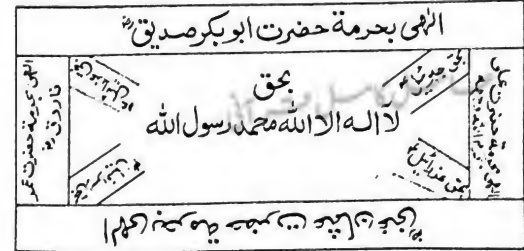 الٰہی بحرمة حضرت ابوبکر صدیق رض
بحق
لا الہ الا اللہ محمد رسول اللہ
بحق جبرائیل
بحق میکائیل
بحق عزرائیل
بحق اسرافیل
الٰہی بحرمة حضرت عمر
فاروق رض
الٰہی بحرمة حضرت علی
الٰہی بحرمة حضرت عثمان غنی رض